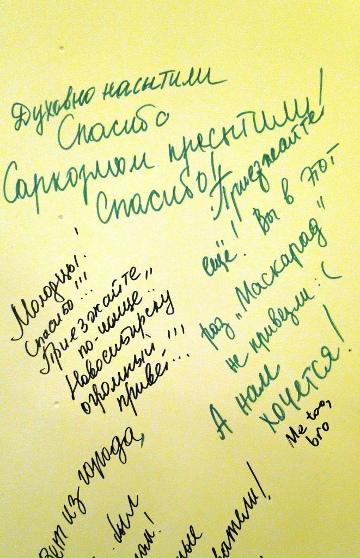 Духовно насытили
Спасибо
Сарказмом пресытили!
Спасибо!
Приезжайте
ещё! Вы в этот
раз „Маскарад"
не привезли :(
А нам
хочется!
Me too,
bro
Молодцы!
Спасибо!!!
Приезжайте,,
по-чаще..
Новосибирску
огромный !!!
привет...
из города,
был